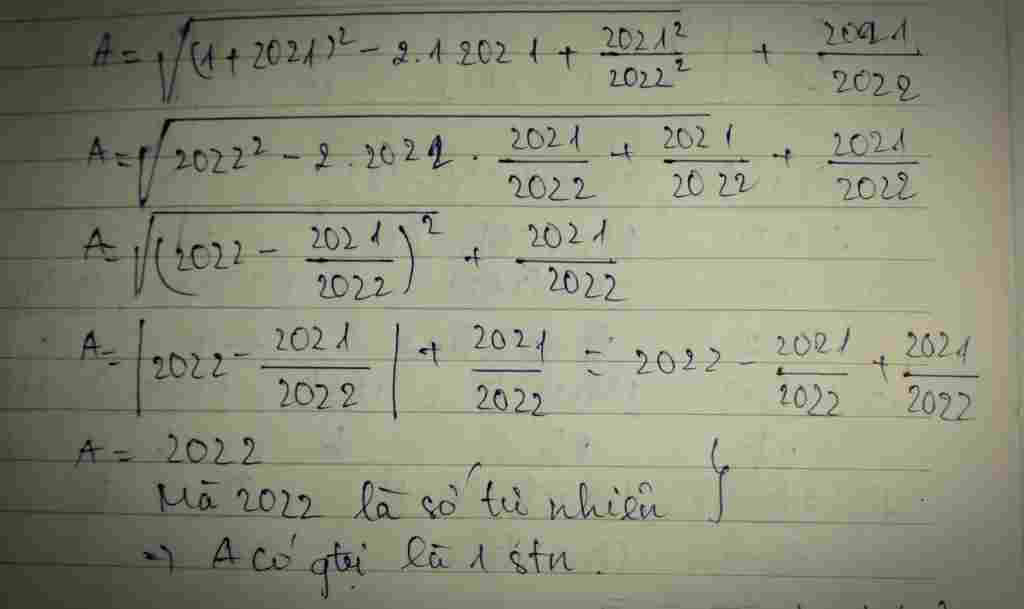 A = √((1 + 2021)² - 2.1.2021 + 2021²/2022²) + 2021/2022
A = √(2022² - 2.2022.2021/2022 + 2021/2022) + 2021/2022
A = √((2022 - 2021/2022)²) + 2021/2022
A = |2022 - 2021/2022| + 2021/2022 = 2022 - 2021/2022 + 2021/2022
A = 2022
Mà 2022 là số tự nhiên }
=> A có gtrị là 1 stn.